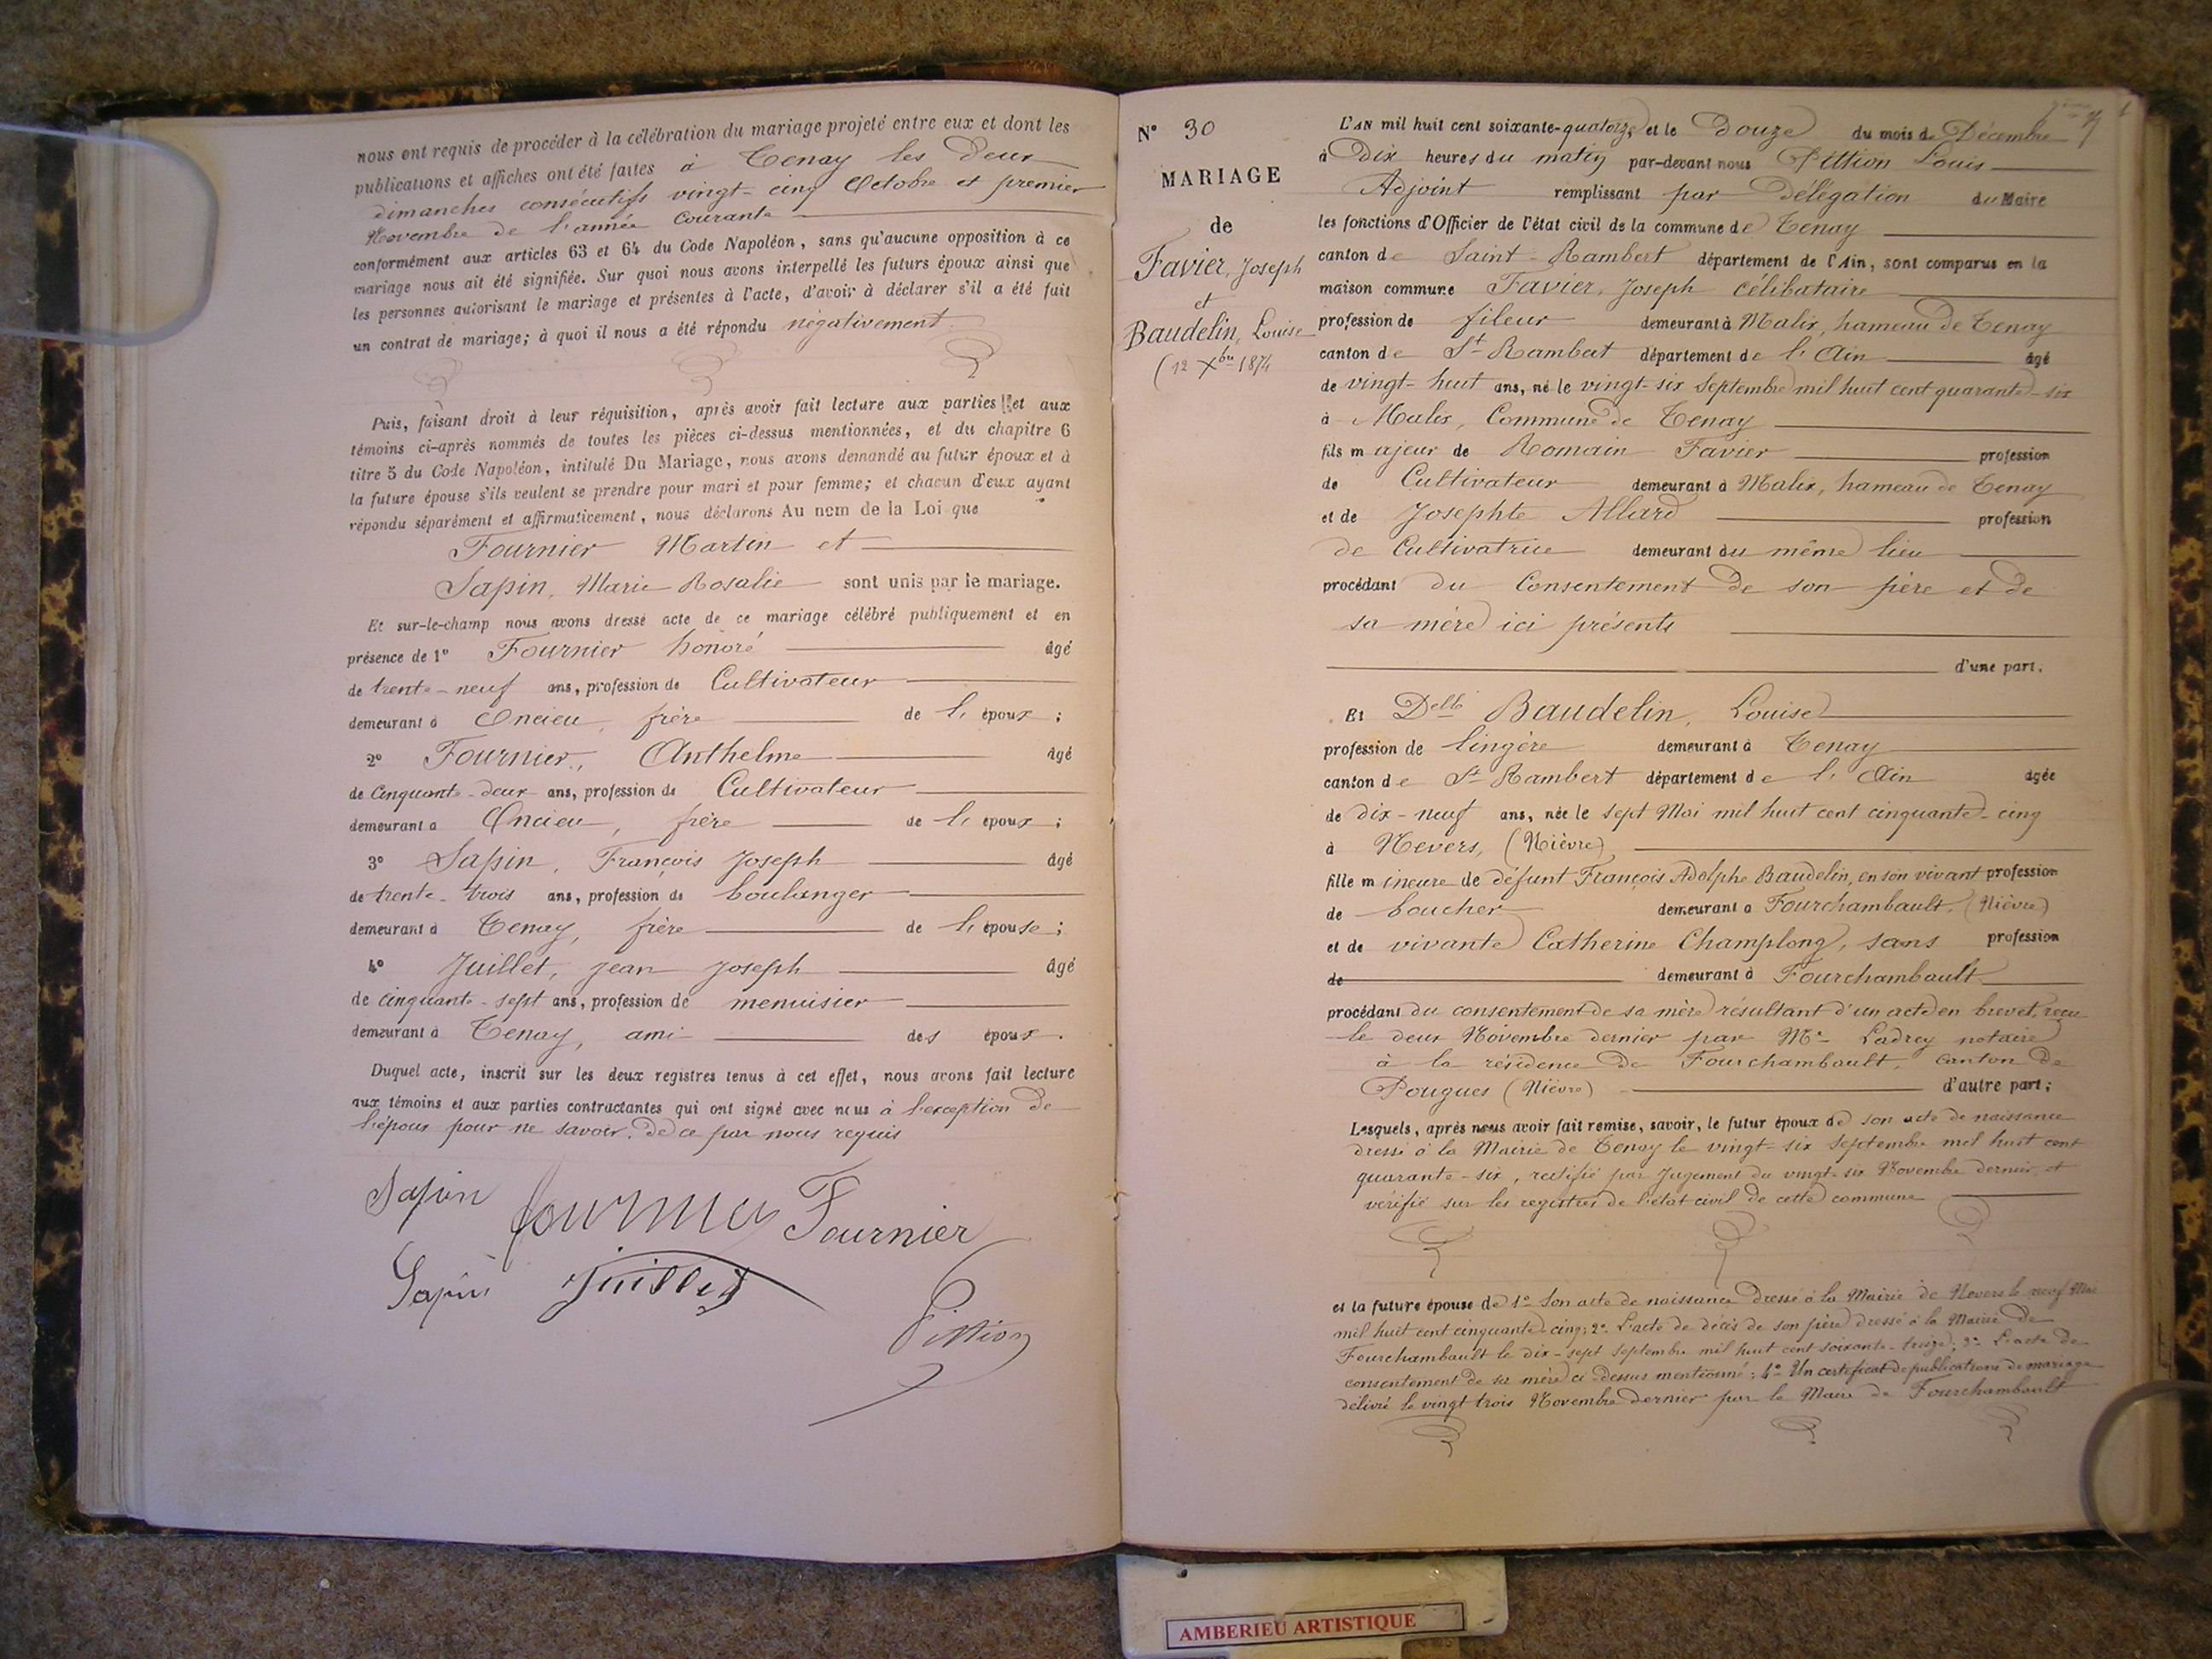 nous ont requis de procéder à la célébration du mariage projeté entre eux et dont les
publications et affiches ont été faites à Tenay les deux
dimanches consécutifs vingt-cinq Octobre et premier
Novembre de l'année Courante
conformément aux articles 63 et 64 du Code Napoléon, sans qu'aucune opposition à ce
mariage nous ait été signifiée. Sur quoi nous avons interpellé les futurs époux ainsi que
les personnes autorisant le mariage et présentes à l'acte, d'avoir à déclarer s'il a été fait
un contrat de mariage; à quoi il nous a été répondu négativement
Puis, faisant droit à leur réquisition, après avoir fait lecture aux parties et aux
témoins ci-après nommés de toutes les pièces ci-dessus mentionnées, et du chapitre 6
titre 5 du Code Napoléon, intitulé Du Mariage, nous avons demandé au futur époux et à
la future épouse s'ils veulent se prendre pour mari et pour femme; et chacun d'eux ayant
répondu séparément et affirmativement, nous déclarons Au nom de la Loi que
Fournier Martin et
Sapin, Marie Rosalie sont unis par le mariage.
Et sur-le-champ nous avons dressé acte de ce mariage célébré publiquement et en
présence de 1° Fournier honoré âgé
de trente-neuf ans, profession de Cultivateur
demeurant à Oncieu, frère de l' époux ;
2° Fournier, Anthelme âgé
de Cinquante-deux ans, profession de Cultivateur
demeurant à Oncieu, frère de l' époux ;
3° Sapin, François Joseph âgé
de trente-trois ans, profession de boulanger
demeurant à Tenay, frère de l' épouse ;
4° Juillet, Jean Joseph âgé
de cinquante-sept ans, profession de menuisier
demeurant à Tenay, ami des époux.
Duquel acte, inscrit sur les deux registres tenus à cet effet, nous avons fait lecture
aux témoins et aux parties contractantes qui ont signé avec nous à l'exception de
l'époux pour ne savoir, de ce par nous requis
Sapin Fournier Fournier
Sapin Juillet
Pittion
N° 30
MARIAGE
de
Favier, Joseph
et
Baudelin, Louise
(12 Xbre 1874
L'AN mil huit cent soixante-quatorze, et le Douze du mois de Décembre
à Dix heures du matin par-devant nous Pittion Louis
Adjoint remplissant par Délégation du Maire
les fonctions d'Officier de l'état civil de la commune de Tenay
canton de Saint-Rambert département de l'Ain, sont comparus en la
maison commune Favier, Joseph célibataire
profession de fileur demeurant à Malix, hameau de Tenay
canton de St Rambert département de l'Ain âgé
de vingt-huit ans, né le vingt-six Septembre mil huit cent quarante-six
à Malix, Commune de Tenay
fils majeur de Romain Favier profession
de Cultivateur demeurant à Malix, hameau de Tenay
et de Josephte Allard profession
de Cultivatrice demeurant au même lieu
procédant du Consentement de son père et de
sa mère ici présents
d'une part.
Et Delle Baudelin, Louise
profession de lingère demeurant à Tenay
canton de St Rambert département de l'Ain âgée
de dix-neuf ans, née le sept Mai mil huit cent cinquante-cinq
à Nevers, (Nièvre)
fille mineure de défunt François Adolphe Baudelin, en son vivant profession
de boucher demeurant à Fourchambault, (Nièvre)
et de vivante Catherine Champlong, sans profession
de demeurant à Fourchambault
procédant du consentement de sa mère résultant d'un acte en brevet, reçu
le deux Novembre dernier par Me Ladrey notaire
à la résidence de Fourchambault, Canton de
Pougues (Nièvre) d'autre part;
Lesquels, après nous avoir fait remise, savoir, le futur époux de son acte de naissance
dressé à la Mairie de Tenay le vingt-six Septembre mil huit cent
quarante-six, rectifié par Jugement du vingt-six Novembre dernier, et
vérifié sur les registres de l'état civil de cette commune
et la future épouse de 1° Son acte de naissance dressé à la Mairie de Nevers le neuf Mai
mil huit cent cinquante-cinq; 2° L'acte de décès de son père dressé à la Mairie de
Fourchambault le dix-sept Septembre mil huit cent soixante-treize; 3° L'acte de
consentement de sa mère ci dessus mentionné; 4° Un certificat de publications de mariage
délivré le vingt trois Novembre dernier par le Maire de Fourchambault
AMBERIEU ARTISTIQUE